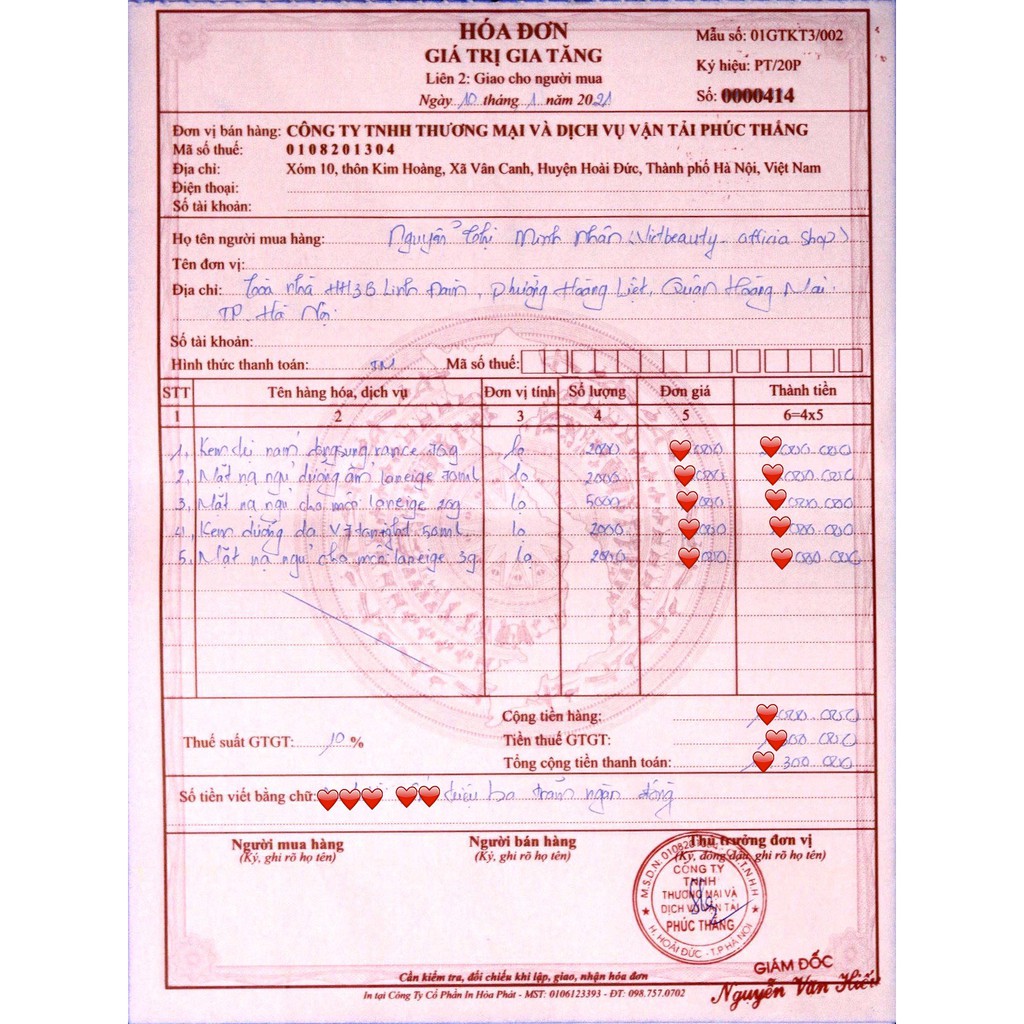 HÓA ĐƠN
GIÁ TRỊ GIA TĂNG
Liên 2: Giao cho người mua
Ngày 10 tháng 1 năm 2021
Mẫu số: 01GTKT3/002
Ký hiệu: PT/20P
Số: 0000414
Đơn vị bán hàng: CÔNG TY TNHH THƯƠNG MẠI VÀ DỊCH VỤ VẬN TẢI PHÚC THẮNG
Mã số thuế: 0108201304
Địa chỉ: Xóm 10, thôn Kim Hoàng, Xã Vân Canh, Huyện Hoài Đức, Thành phố Hà Nội, Việt Nam
Điện thoại:
Số tài khoản:
Họ tên người mua hàng: Nguyễn Thị Minh Nhân (Vietbeauty officia shop)
Tên đơn vị:
Địa chỉ: Toà nhà HH3B Linh Đàm, Phường Hoàng Liệt, Quận Hoàng Mai
TP. Hà Nội
Số tài khoản:
Hình thức thanh toán: TM Mã số thuế:
STT Tên hàng hóa, dịch vụ Đơn vị tính Số lượng Đơn giá Thành tiền
1 2 3 4 5 6=4x5
1. Kem dị nám dongsung rance lọ 2000 000 000.000
2. Mặt nạ ngủ dưỡng ẩm laneige 70ml lọ 2000 000 000.000
3. Mặt nạ ngủ cho môi laneige 20g lọ 5000 000 000.000
4. Kem dưỡng da V7 50ml lọ 2000 000 000.000
5. Mặt nạ ngủ cho môi laneige 3g lọ 000 000.000
Cộng tiền hàng: 000.000
Thuế suất GTGT: 10 % Tiền thuế GTGT: 000
Tổng cộng tiền thanh toán: 300.000
Số tiền viết bằng chữ: triệu ba trăm ngàn đồng
Người mua hàng Người bán hàng Thủ trưởng đơn vị
(Ký, ghi rõ họ tên) (Ký, ghi rõ họ tên) (Ký, đóng dấu, ghi rõ họ tên)
CÔNG TY
TNHH
THƯƠNG MẠI VÀ
DỊCH VỤ VẬN TẢI
PHÚC THẮNG
H. HOÀI ĐỨC - T.P HÀ NỘI
GIÁM ĐỐC
Nguyễn Văn Hiếu
Cần kiểm tra, đối chiếu khi lập, giao, nhận hóa đơn
In tại Công Ty Cổ Phần In Hòa Phát - MST: 0106123393 - ĐT: 098.757.0702